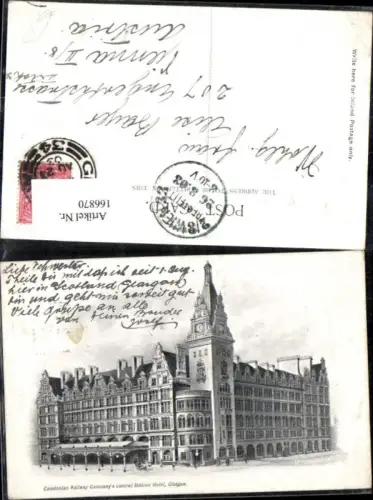 Write here for Inland Postage only.
POST CARD.
THE ADDRESS
Wohlg. Frau
Elise Bayer
207 Engerthstrasse
Vienna II/8
Austria
Artikel Nr.
166870
Liebe Schwester.
Theile dir mit daß ich seit 1 Aug.
hier in Scotland Glasgow
bin und geht mir soweit gut
Viele Grüße an alle
von deinem Bruder
Josef
Caledonian Railway Company's Central Station Hotel, Glasgow.